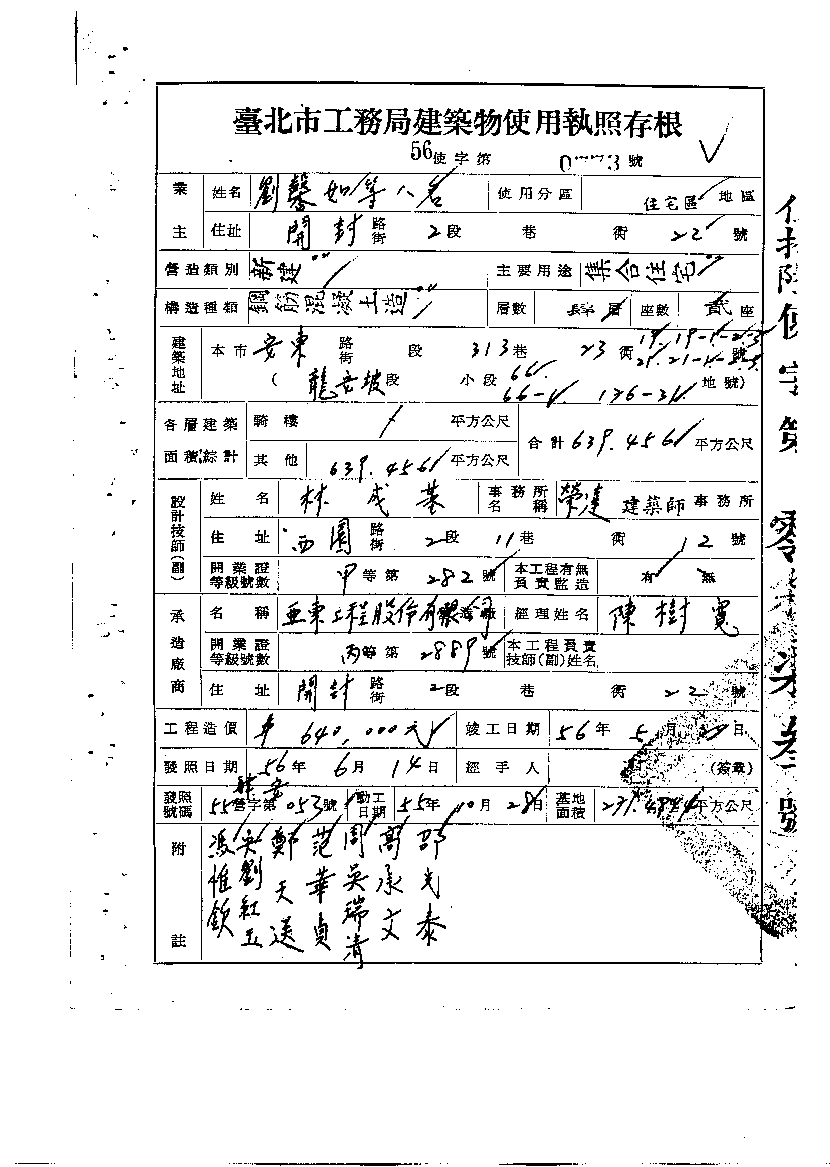 臺北市工務局建築物使用執照存根
56使字第 號
業主 姓名 劉馨如等八名 使用分區 住宅區 地區
住址 開封 路街 2段 巷 衖 22號
營造類別 新建 主要用途 集合住宅
構造種類 鋼筋混凝土造 層數 肆層 座數 貳座
建築地址 本市 安東 路街 段 313巷 23衖 號
(龍安坡段 小段 66. 66-1. 136-31 地號)
各層建築面積綜計 騎樓 平方公尺 合計 639.456 平方公尺
其他 639.456 平方公尺
設計技師(副) 姓名 林成基 事務所名稱 榮達 建築師事務所
住址 西園 路街 2段 11巷 衖 12號
開業證等級號數 甲等第 282號 本工程有無負責監造 有 無
承造廠商 名稱 亞東工程股份有限公司 經理姓名 陳樹寬
開業證等級號數 丙等第 2889號 本工程負責技師(副)姓名
住址 開封 路街 2段 巷 衖 22號
工程造價 640,000元 竣工日期 56年 5月 日
發照日期 56年 6月 14日 經手人 (簽章)
發照號碼 55營字第053號 動工日期 55年 10月 28日 基地面積 平方公尺
附註
馮惟欽
劉紅玉
鄭天送
范華貞
周吳瑞清
高承文
邵戈泰